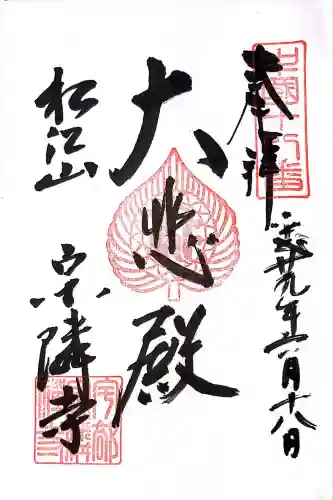 奉拝
平成廿九年六月十八日
大悲殿
松江山
宗隣寺